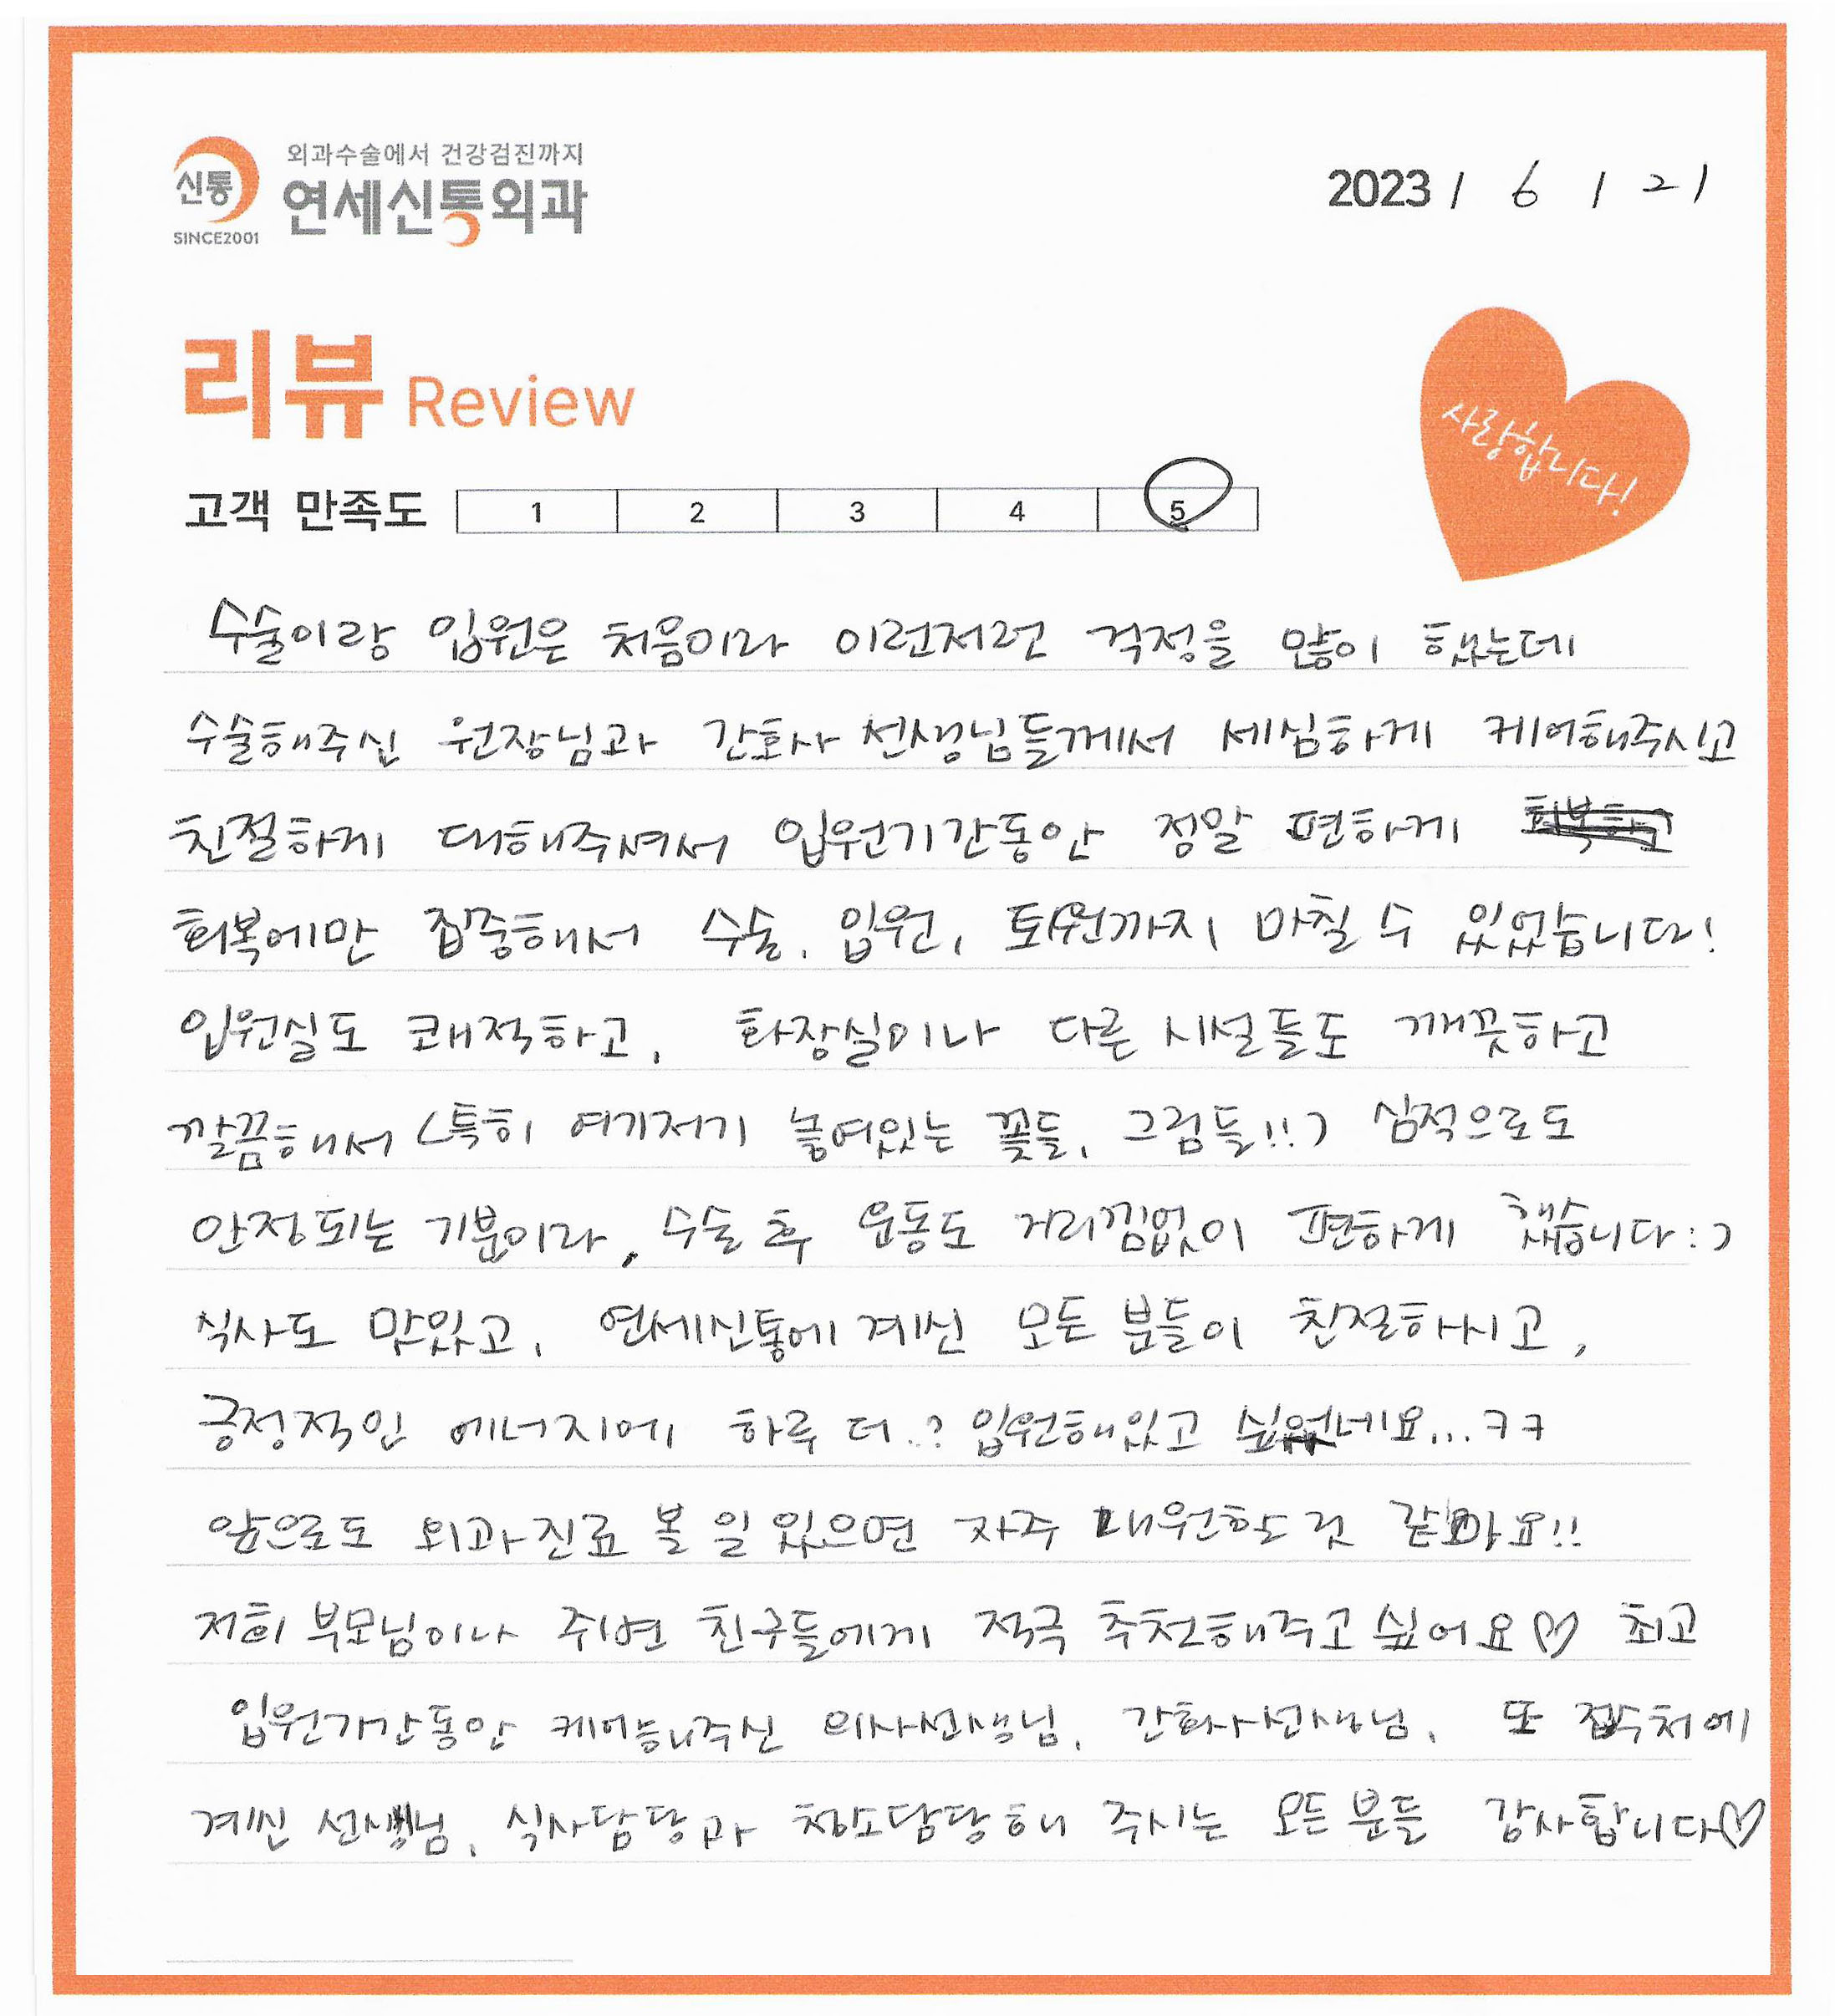 신통
SINCE2001
외과수술에서 건강검진까지
연세신통외과
2023 / 6 / 21
리뷰 Review
사랑합니다!
고객 만족도 1 2 3 4 5
수술이랑 입원은 처음이라 이런저런 걱정을 많이 했는데
수술해주신 원장님과 간호사 선생님들께서 세심하게 케어해주시고
친절하게 대해주셔서 입원기간동안 정말 편하게
회복에만 집중해서 수술, 입원, 퇴원까지 마칠 수 있었습니다!
입원실도 쾌적하고, 화장실이나 다른 시설들도 깨끗하고
깔끔해서 (특히 여기저기 놓여있는 꽃들, 그림들!!) 심적으로도
안정되는 기분이라, 수술 후 운동도 거리낌없이 편하게 했습니다:)
식사도 맛있고, 연세신통에 계신 모든 분들이 친절하시고,
긍정적인 에너지에 하루 더..? 입원해있고 싶었네요...ㅋㅋ
앞으로도 외과진료 볼 일 있으면 자주 내원할 것 같아요!!
저희 부모님이나 주변 친구들에게 적극 추천해주고 싶어요♡ 최고
입원기간동안 케어해주신 의사선생님, 간호사선생님, 또 접수처에
계신 선생님, 식사담당과 청소담당해 주시는 모든 분들 감사합니다♡